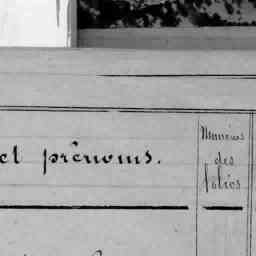 et prénoms.
Numéros
des
folios